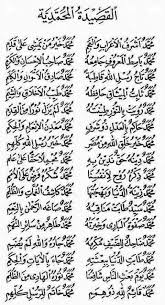 اَلْقَصِيدَةُ الْمُحَمَّدِيَّة
مُحَمَّدٌ أَشْرَفُ الْأَعْرَابِ وَالْعَجَمِ مُحَمَّدٌ خَيْرُ مَنْ يَمْشِي عَلَى قَدَمِ
مُحَمَّدٌ بَاسِطُ الْمَعْرُوفِ جَامِعُهُ مُحَمَّدٌ صَاحِبُ الْإِحْسَانِ وَالْكَرَمِ
مُحَمَّدٌ تَاجُ رُسْلِ اللهِ قَاطِبَةً مُحَمَّدٌ صَادِقُ الْأَقْوَالِ وَالْكَلِمِ
مُحَمَّدٌ ثَابِتُ الْمِيثَاقِ حَافِظُهُ مُحَمَّدٌ طَيِّبُ الْأَخْلَاقِ وَالشِّيَمِ
مُحَمَّدٌ رُوِيَتْ بِالنُّورِ طِينَتُهُ مُحَمَّدٌ لَمْ يَزَلْ نُورًا مِنَ الْقِدَمِ
مُحَمَّدٌ حَاكِمٌ بِالْعَدْلِ ذُو شَرَفٍ مُحَمَّدٌ مَعْدِنُ الْإِنْعَامِ وَالْحِكَمِ
مُحَمَّدٌ خَيْرُ خَلْقِ اللهِ مِنْ مُضَرٍ مُحَمَّدٌ خَيْرُ رُسْلِ اللهِ كُلِّهِمِ
مُحَمَّدٌ دِينُهُ حَقٌّ مُحَمَّدٌ عَلَى عَلَمِ
مُحَمَّدٌ ذِكْرُهُ رُوحٌ لِأَنْفُسِنَا مُحَمَّدٌ شُكْرُهُ فَرْضٌ عَلَى الْأُمَمِ
مُحَمَّدٌ زِينَةُ الدُّنْيَا وَبَهْجَتُهَا مُحَمَّدٌ كَاشِفُ الْغُمَّاتِ وَالظُّلَمِ
مُحَمَّدٌ سَيِّدٌ طَابَتْ مَنَاقِبُهُ مُحَمَّدٌ صَاغَهُ الرَّحْمٰنُ بِالنِّعَمِ
مُحَمَّدٌ صَفْوَةُ الْبَارِي وَخِيرَتُهُ مُحَمَّدٌ طَاهِرٌ مِنْ سَائِرِ التُّهَمِ
مُحَمَّدٌ ضَاحِكٌ لِلضَّيْفِ مُكْرِمُهُ مُحَمَّدٌ جَارُهُ وَاللهِ لَمْ يُضَمِ
مُحَمَّدٌ طَابَتِ الدُّنْيَا بِبِعْثَتِهِ مُحَمَّدٌ جَاءَ بِالْآيَاتِ وَالْحِكَمِ
مُحَمَّدٌ يَوْمَ بَعْثِ النَّاسِ شَافِعُنَا مُحَمَّدٌ نُورُهُ الْهَادِي مِنَ الظُّلَمِ
مُحَمَّدٌ قَائِمٌ لِلهِ ذُو هِمَمٍ مُحَمَّدٌ خَاتَمٌ لِلرُّسْلِ كُلِّهِمِ